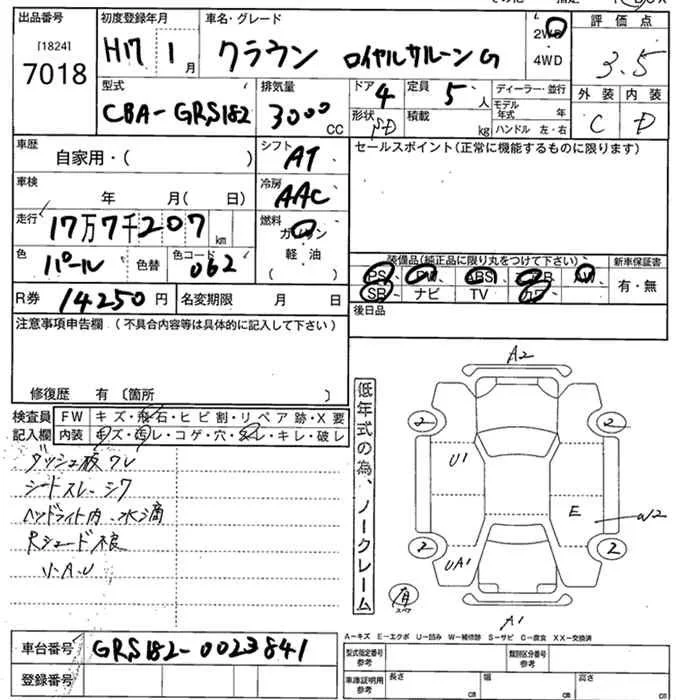 出品番号 初度登録年月 車名・グレード
[1824]
7018 H17 1月 クラウン ロイヤルサルーンG 2WD・4WD
評価点
3.5
外装 内装
C D
型式 排気量 ドア 定員 ディーラー・並行
CBA-GRS182 3000CC 4 5人
形状 積載 モデル年式 年
SD kg ハンドル 左・右
車歴 シフト セールスポイント(正常に機能するものに限ります)
自家用・( ) AT
車検 冷房
年 月( 日) AAC
走行 燃料
17万7千207km ガソリン・軽・油( )
色 色替 色コード
パール 062
装備品(純正品に限り丸をつけて下さい) 新車保証書
PS、PW、ABS、AB、AW 有・無
SR、ナビ、TV、カワ
R券 14250円 名変期限 月 日 後日品
注意事項申告欄(不具合内容等は具体的に記入して下さい)
修復歴 有〔箇所 〕
検査員記入欄
FW キズ・飛石・ヒビ割・リペア跡・X要
内装 キズ・汚レ・コゲ・穴・スレ・キレ・破レ
ダッシュ板ワレ
シートスレ・シワ
ヘッドライト内 水滴
Rシェード不良
U・A・U
低年式の為、ノークレーム
A2
2 2
U1
E W2
2 2
UA1
有
スペア
A1
A-キズ E-エクボ U-凹み W-補修跡 S-サビ C-腐食 XX-交換済
車台番号 GRS182-0023841
登録番号
型式指定番号 参考 類別区分番号 参考
車庫証明用 参考 長さ cm 幅 cm 高さ cm